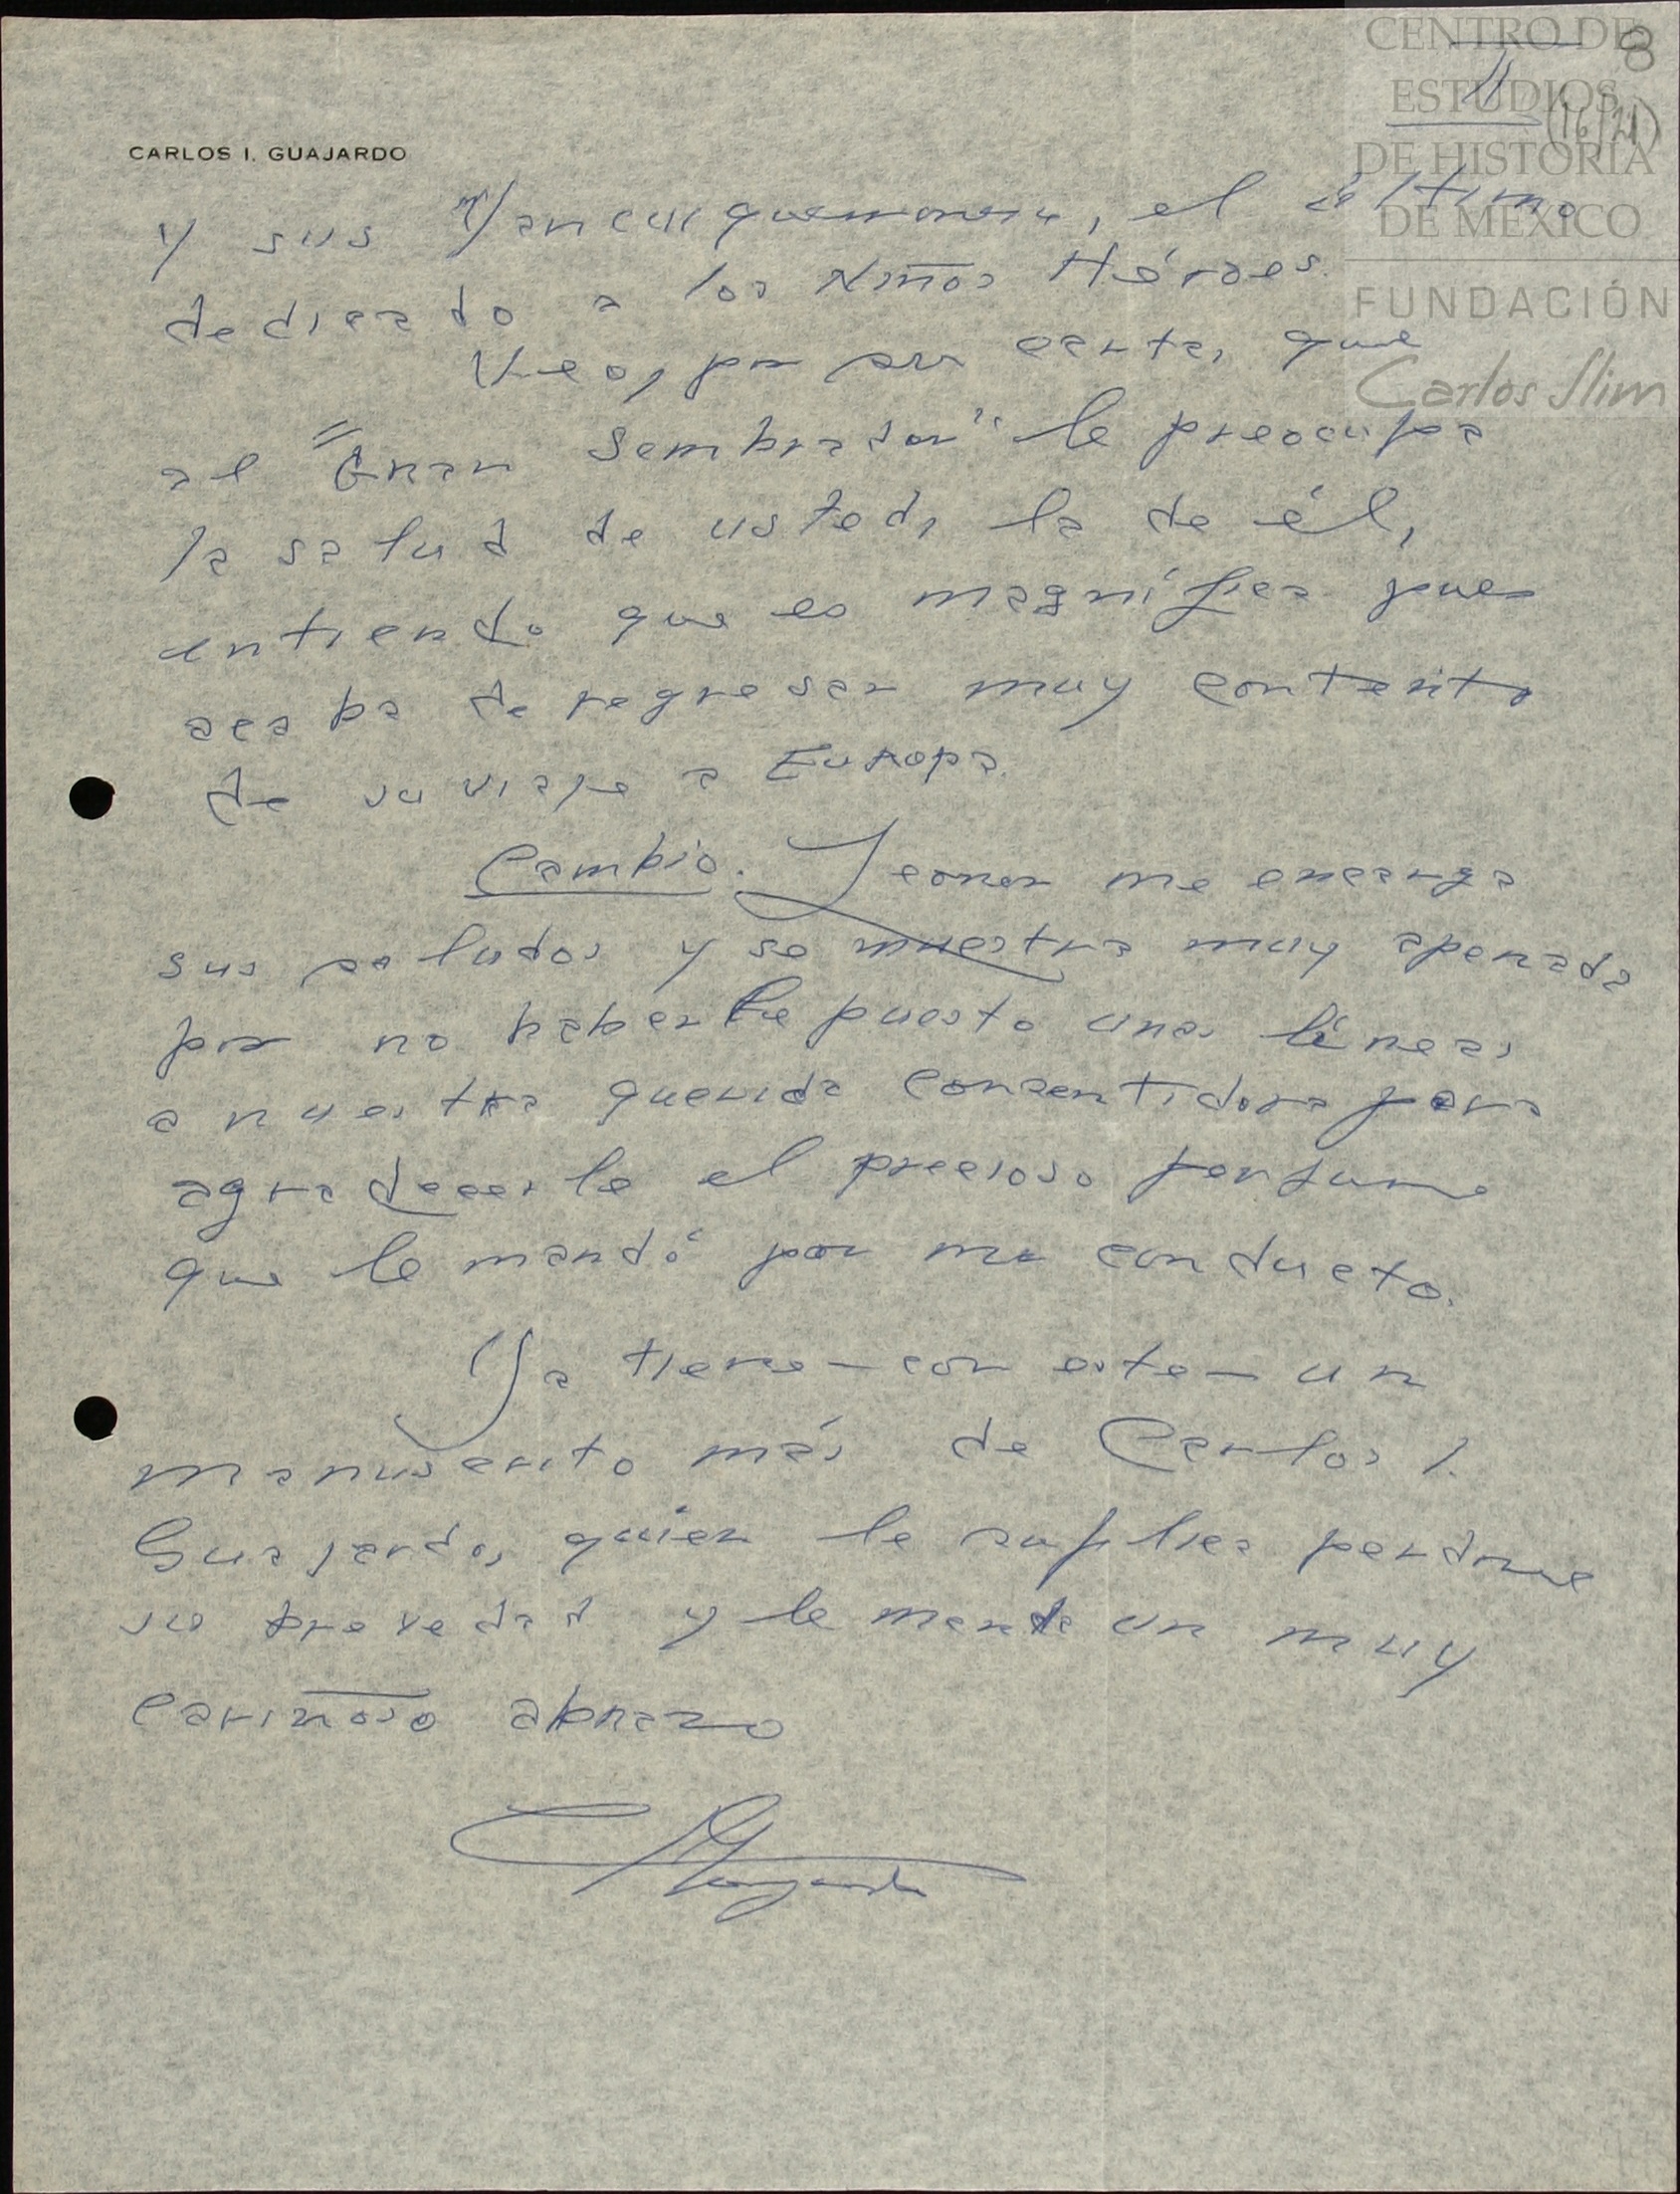 CENTRO DE
ESTUDIOS
DE HISTORIA
DE MÉXICO
FUNDACIÓN
Carlos Slim
8
11
(16/21)
CARLOS I. GUAJARDO
y sus el último
dedicado a los Niños Héroes.
Veo, por su carta, que
al "Gran Sembrador" le preocupa
la salud de usted, la de él,
entiendo que es magnífica pues
acaba de regresar muy contento
de su viaje a Europa.
Cambio. Leonor me encarga
sus saludos y se muestra muy apenada
por no haberle puesto unas líneas
a nuestra querida consentidora para
agradecerle el precioso perfume
que le mandó por mi conducto.
Ya tiene – con este – un
manuscrito más de Carlos I.
Guajardo, quien le suplica perdone
su brevedad y le manda un muy
cariñoso abrazo
CIGuajardo